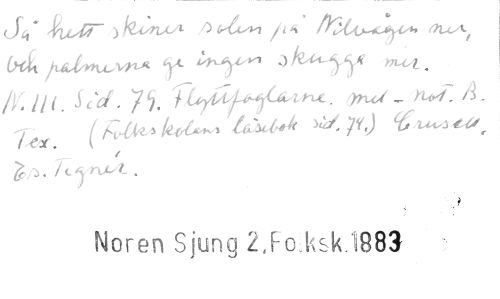 Så hett skiner solen på Nilvågen ner,
och palmerna ge ingen skugga mer.
N. III. Sid. 79. Flyttfoglarne. med - not. B.
Tex. (Folkskolans läsebok sid. 74.) Crusell.
Es. Tegnér.
Noren Sjung 2, Folksk. 1883